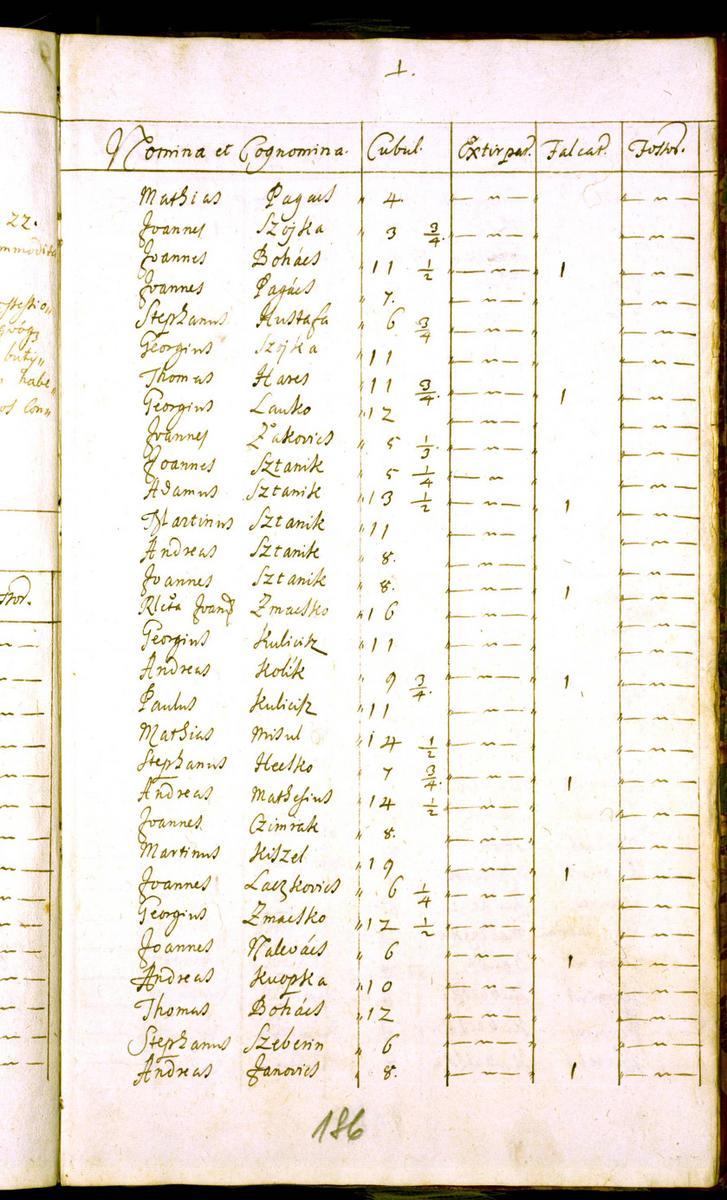 1.
Nomina et Cognomina. Cubul. Extirpat. Falcat. Fossor.
Mathias Pagács „ 4. „ — „ — „ — „ —
Joannes Szojka „ 3 3/4. „ — „ — „ — „ —
Joannes Bohács „ 11 1/2 „ — „ — 1 „ — „ —
Joannes Pagács „ 7. „ — „ — „ — „ —
Stephanus Kustafa „ 6 3/4 „ — „ — „ — „ —
Georgius Szojka „ 11 „ — „ — „ — „ —
Thomas Hares „ 11 3/4. „ — „ — 1 „ — „ —
Georgius Lauko „ 12 „ — „ — „ — „ —
Joannes Žakovics „ 5 1/3 „ — „ — „ — „ —
Joannes Sztanik „ 5 1/4 „ — „ — „ — „ —
Adamus Sztanik „ 13 1/2 „ — „ — 1 „ — „ —
Martinus Sztanik „ 11 „ — „ — „ — „ —
Andreas Sztanik „ 8. „ — „ — „ — „ —
Joannes Sztanik „ 8. „ — „ — 1 „ — „ —
Rlcta Joanis Zmacsko „ 16 „ — „ — „ — „ —
Georgius Kulicik „ 11 „ — „ — „ — „ —
Andreas Kolik „ 9 3/4. „ — „ — 1 „ — „ —
Paulus Kulicik „ 11 „ — „ — „ — „ —
Mathias Misul „ 14 1/2 „ — „ — „ — „ —
Stephanus Hecsko „ 7 3/4. „ — „ — „ — „ —
Andreas Mathesius „ 14 1/2 „ — „ — 1 „ — „ —
Joannes Czimrak „ 8. „ — „ — „ — „ —
Martinus Kiszel „ 19 „ — „ — 1 „ — „ —
Joannes Laczkovics „ 6 1/4 „ — „ — „ — „ —
Georgius Zmacsko „ 12 1/2 „ — „ — „ — „ —
Joannes Nalevács „ 6 „ — „ — 1 „ — „ —
Andreas Kuopka „ 10 „ — „ — „ — „ —
Thomas Bohács „ 12 „ — „ — „ — „ —
Stephanus Szeberin „ 6 „ — „ — „ — „ —
Andreas Janovics „ 8. „ — „ — 1 „ — „ —
186
22.